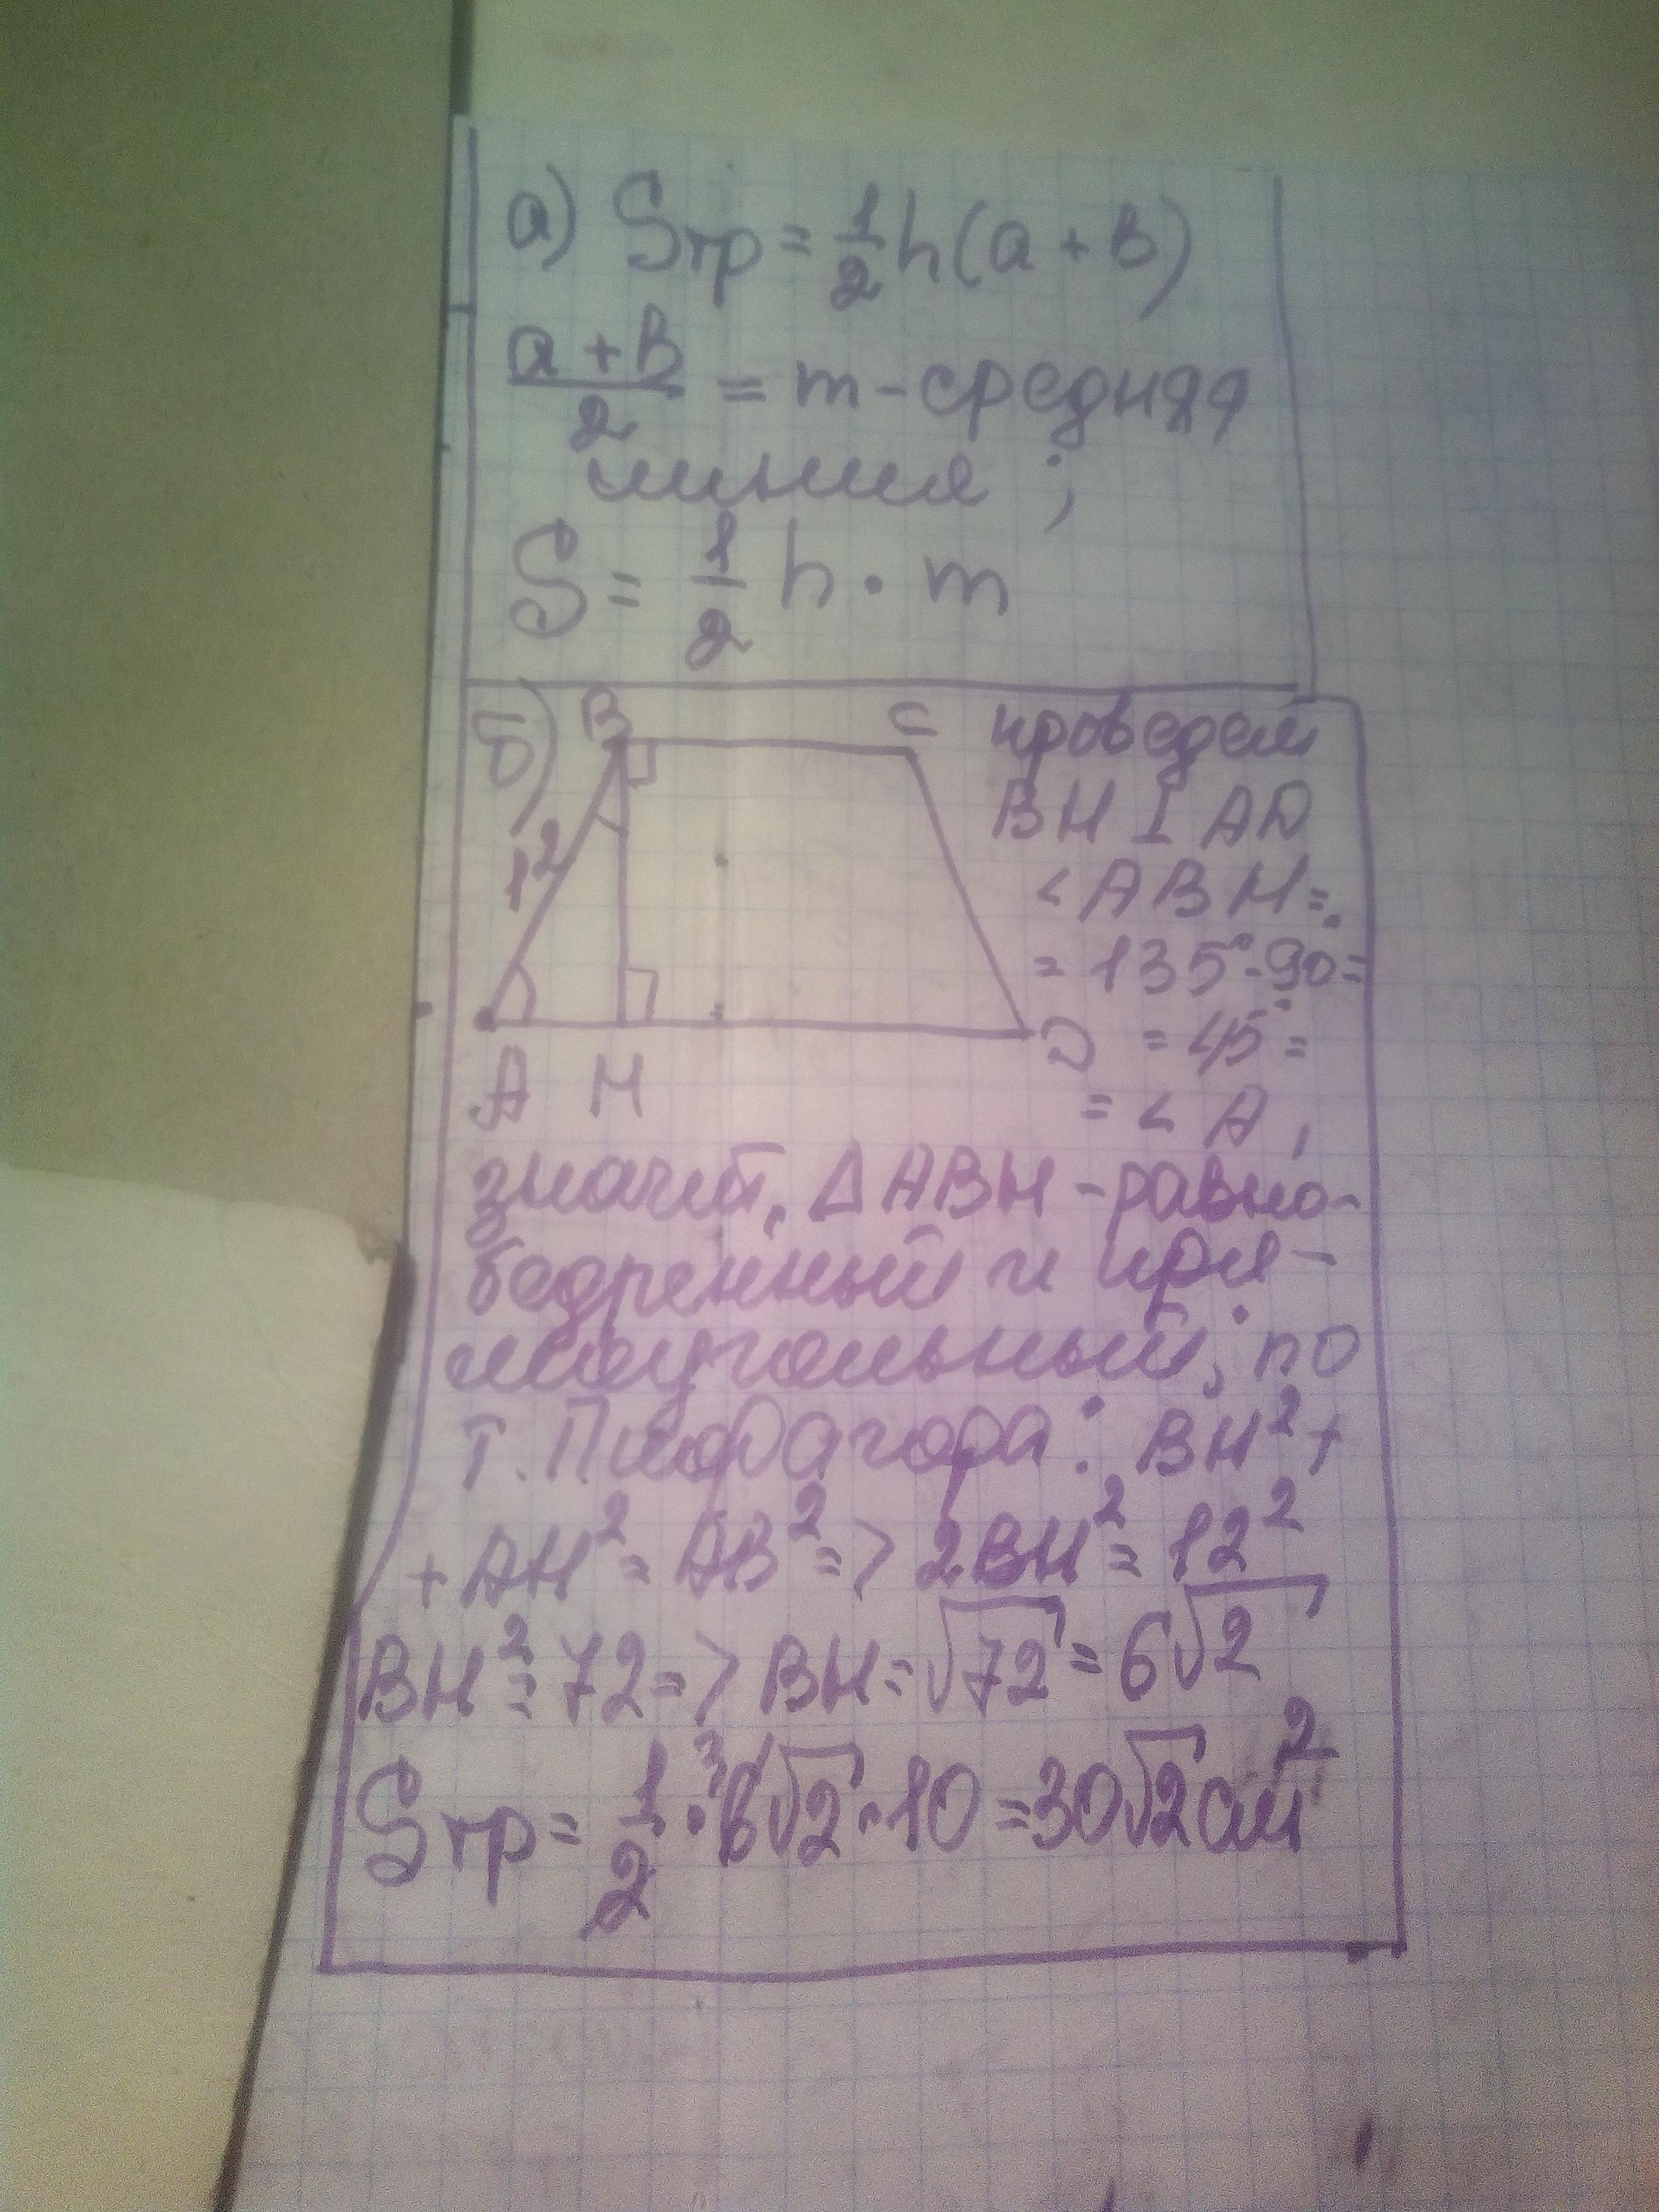 а) Sтр = 1/2 h(a + в)
a + в / 2 = m - средняя
линия;
S = 1/2 h · m
б) B C проведем
BH ⊥ AD
12 < ABH =
= 135° - 90 =
D = 45° =
A H = < A,
значит, Δ ABH - равно-
бедренный и пря-
моугольный; по
т. Пифагора: BH² +
+ AH² = AB² => 2BH² = 12²
BH² = 72 => BH = √72 = 6√2
Sтр = 1/2 · 6√2 · 10 = 30√2 см²
3